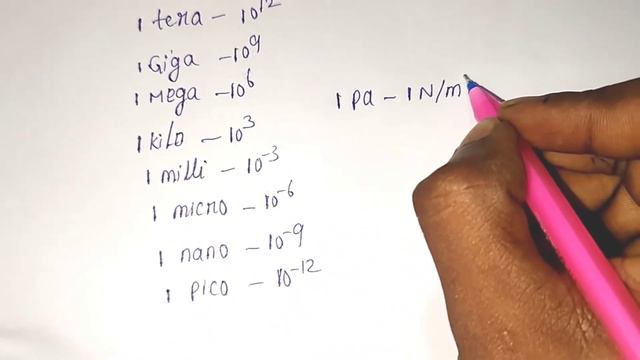 1 tera - 10¹²
1 Giga - 10⁹
1 Mega - 10⁶
1 kilo - 10³
1 milli - 10⁻³
1 micro - 10⁻⁶
1 nano - 10⁻⁹
1 pico - 10⁻¹²
1 pa - 1 N/m